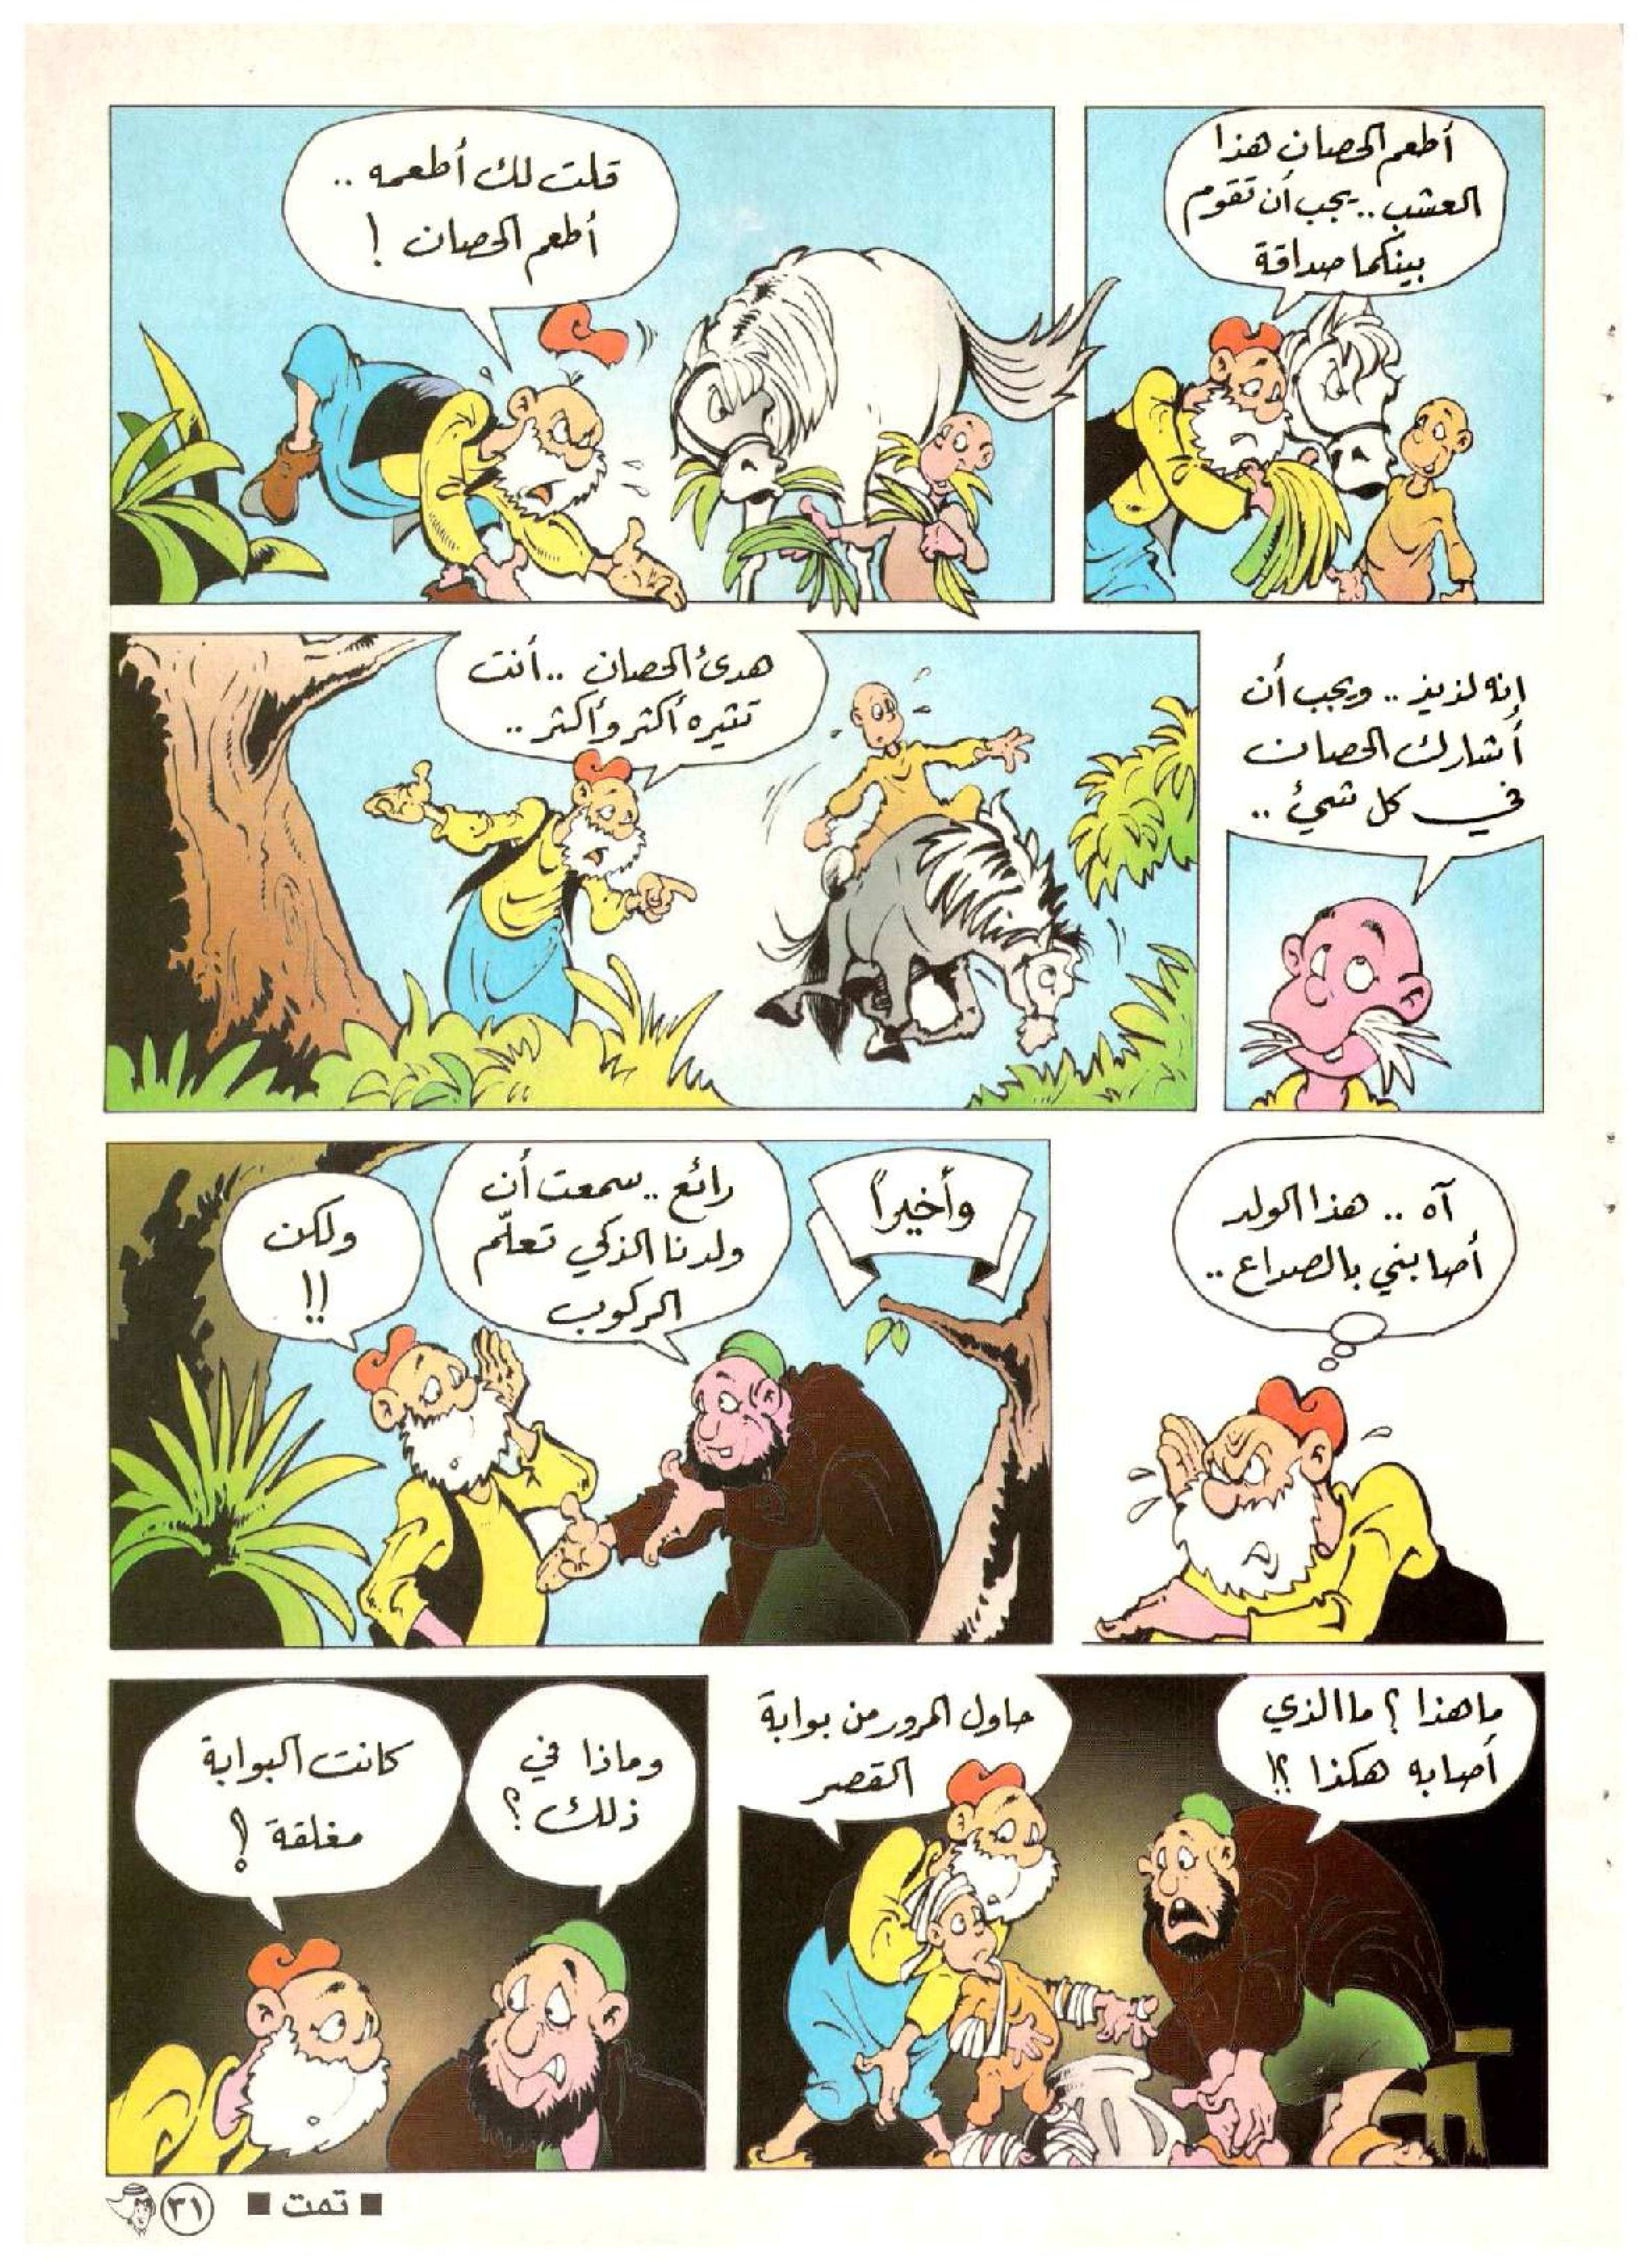 أطعم الحصان هذا
العشب .. يجب أن تقوم
بينكما صداقة
قلت لك أطعمه ..
أطعم الحصان !
إنه لذيذ .. ويجب أن
أشارك الحصان
في كل شيئ ..
هدئ الحصان .. أنت
تثيره أكثر وأكثر ..
آه .. هذا الولد
أصابني بالصداع ..
وأخيراً
رائع .. سمعت أن
ولدنا الذكي تعلّم
الركوب
ولكن
!!
ما هذا ؟ ما الذي
أصابه هكذا ؟!
حاول المرور من بوابة
القصر
وماذا في
ذلك ؟
كانت البوابة
مغلقة !
■ تمت ■
٣١